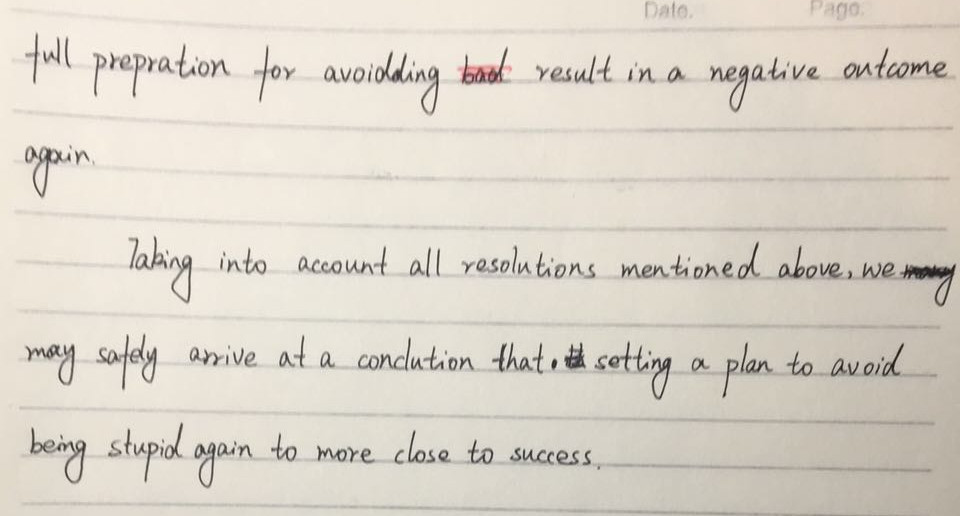 Date. Page.
full prepration for avoidding bad result in a negative outcome
again.
Taking into account all resolutions mentioned above, we many
may safely arrive at a conclution that. setting a plan to avoid
being stupid again to more close to success.